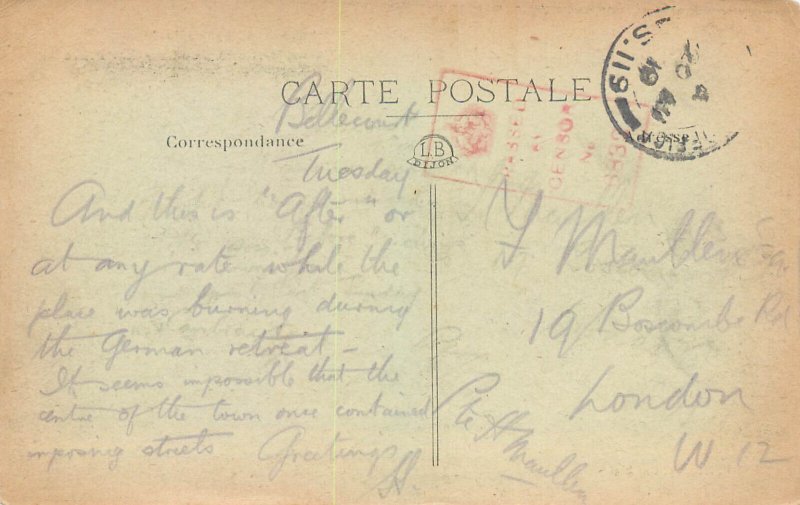 CARTE POSTALE
Correspondance
L.B
DIJON
PASSED
BY
CENSOR
No
S.119
Bellecourt
Tuesday
And this is "After" or
at any rate while the
place was burning during
the German retreat -
It seems impossible that the
centre of the town once contained
imposing streets Greetings
H.
F Maullen
19 Boscombe Rd
London
W 12
Pte H Maullen